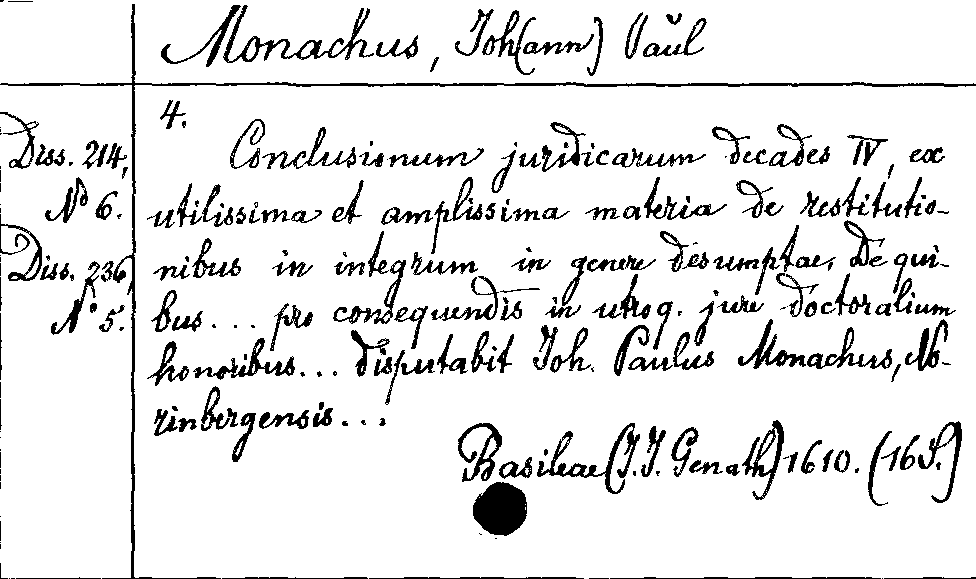 Monachus, Joh(ann) Paŭl
4.
Diss. 214,
No 6.
Diss. 236,
No 5.
Conclusionum juridicarum decades IV, ex
utilissima et amplissima materia de restitutio-
nibus in integrum in genere desumptae. De qui-
bus... pro consequendis in utroq. jure doctoralium
honoribus... disputabit Joh. Paulus Monachus, No-
rinbergensis...
Basileae (J. J. Genath) 1610. (16 S.)